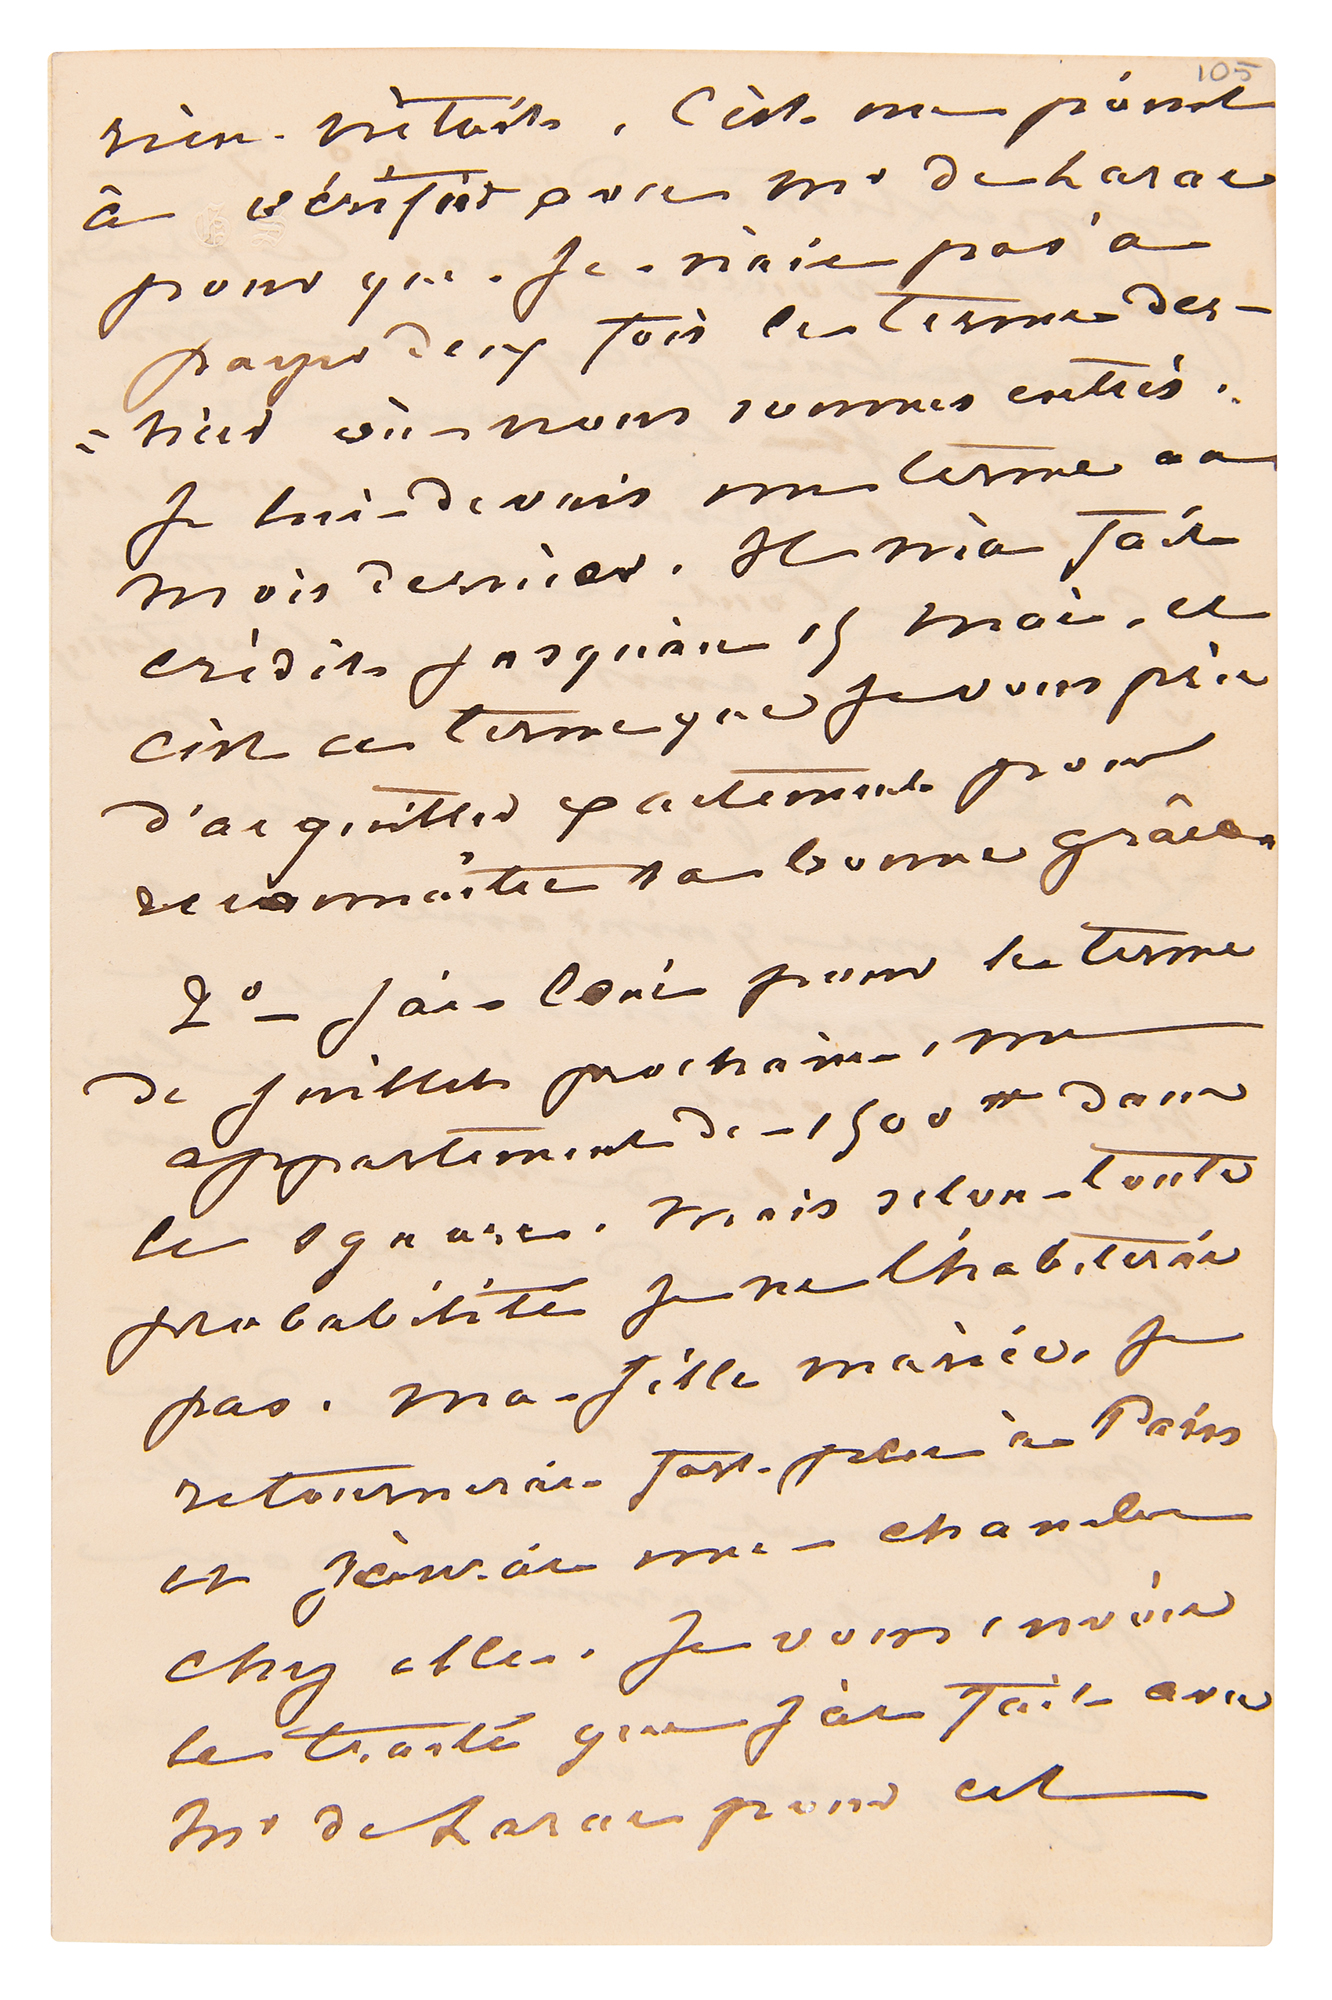 105
rien n'étoit. C'est un point
à vérifier avec Mr de Larac
pour que je n'aie pas à
payer deux fois le terme der-
"nier où nous sommes entrés.
Je lui devais un terme au
mois dernier. Il m'a fait
crédit jusqu'au 15 mai, et
c'est ce terme que je vous prie
d'acquitter exactement pour
reconnaître sa bonne grâce.
2° J'ai loué pour le terme
de juillet prochain, un
appartement de 1500 ff dans
le square. Mais selon toute
probabilité je ne l'habiterai
pas. Ma fille mariée, je
retournerai fort peu à Paris
et j'aurai une chambre
chez elle. Je vous envoie
le traité que j'ai fait avec
Mr de Larac pour cet